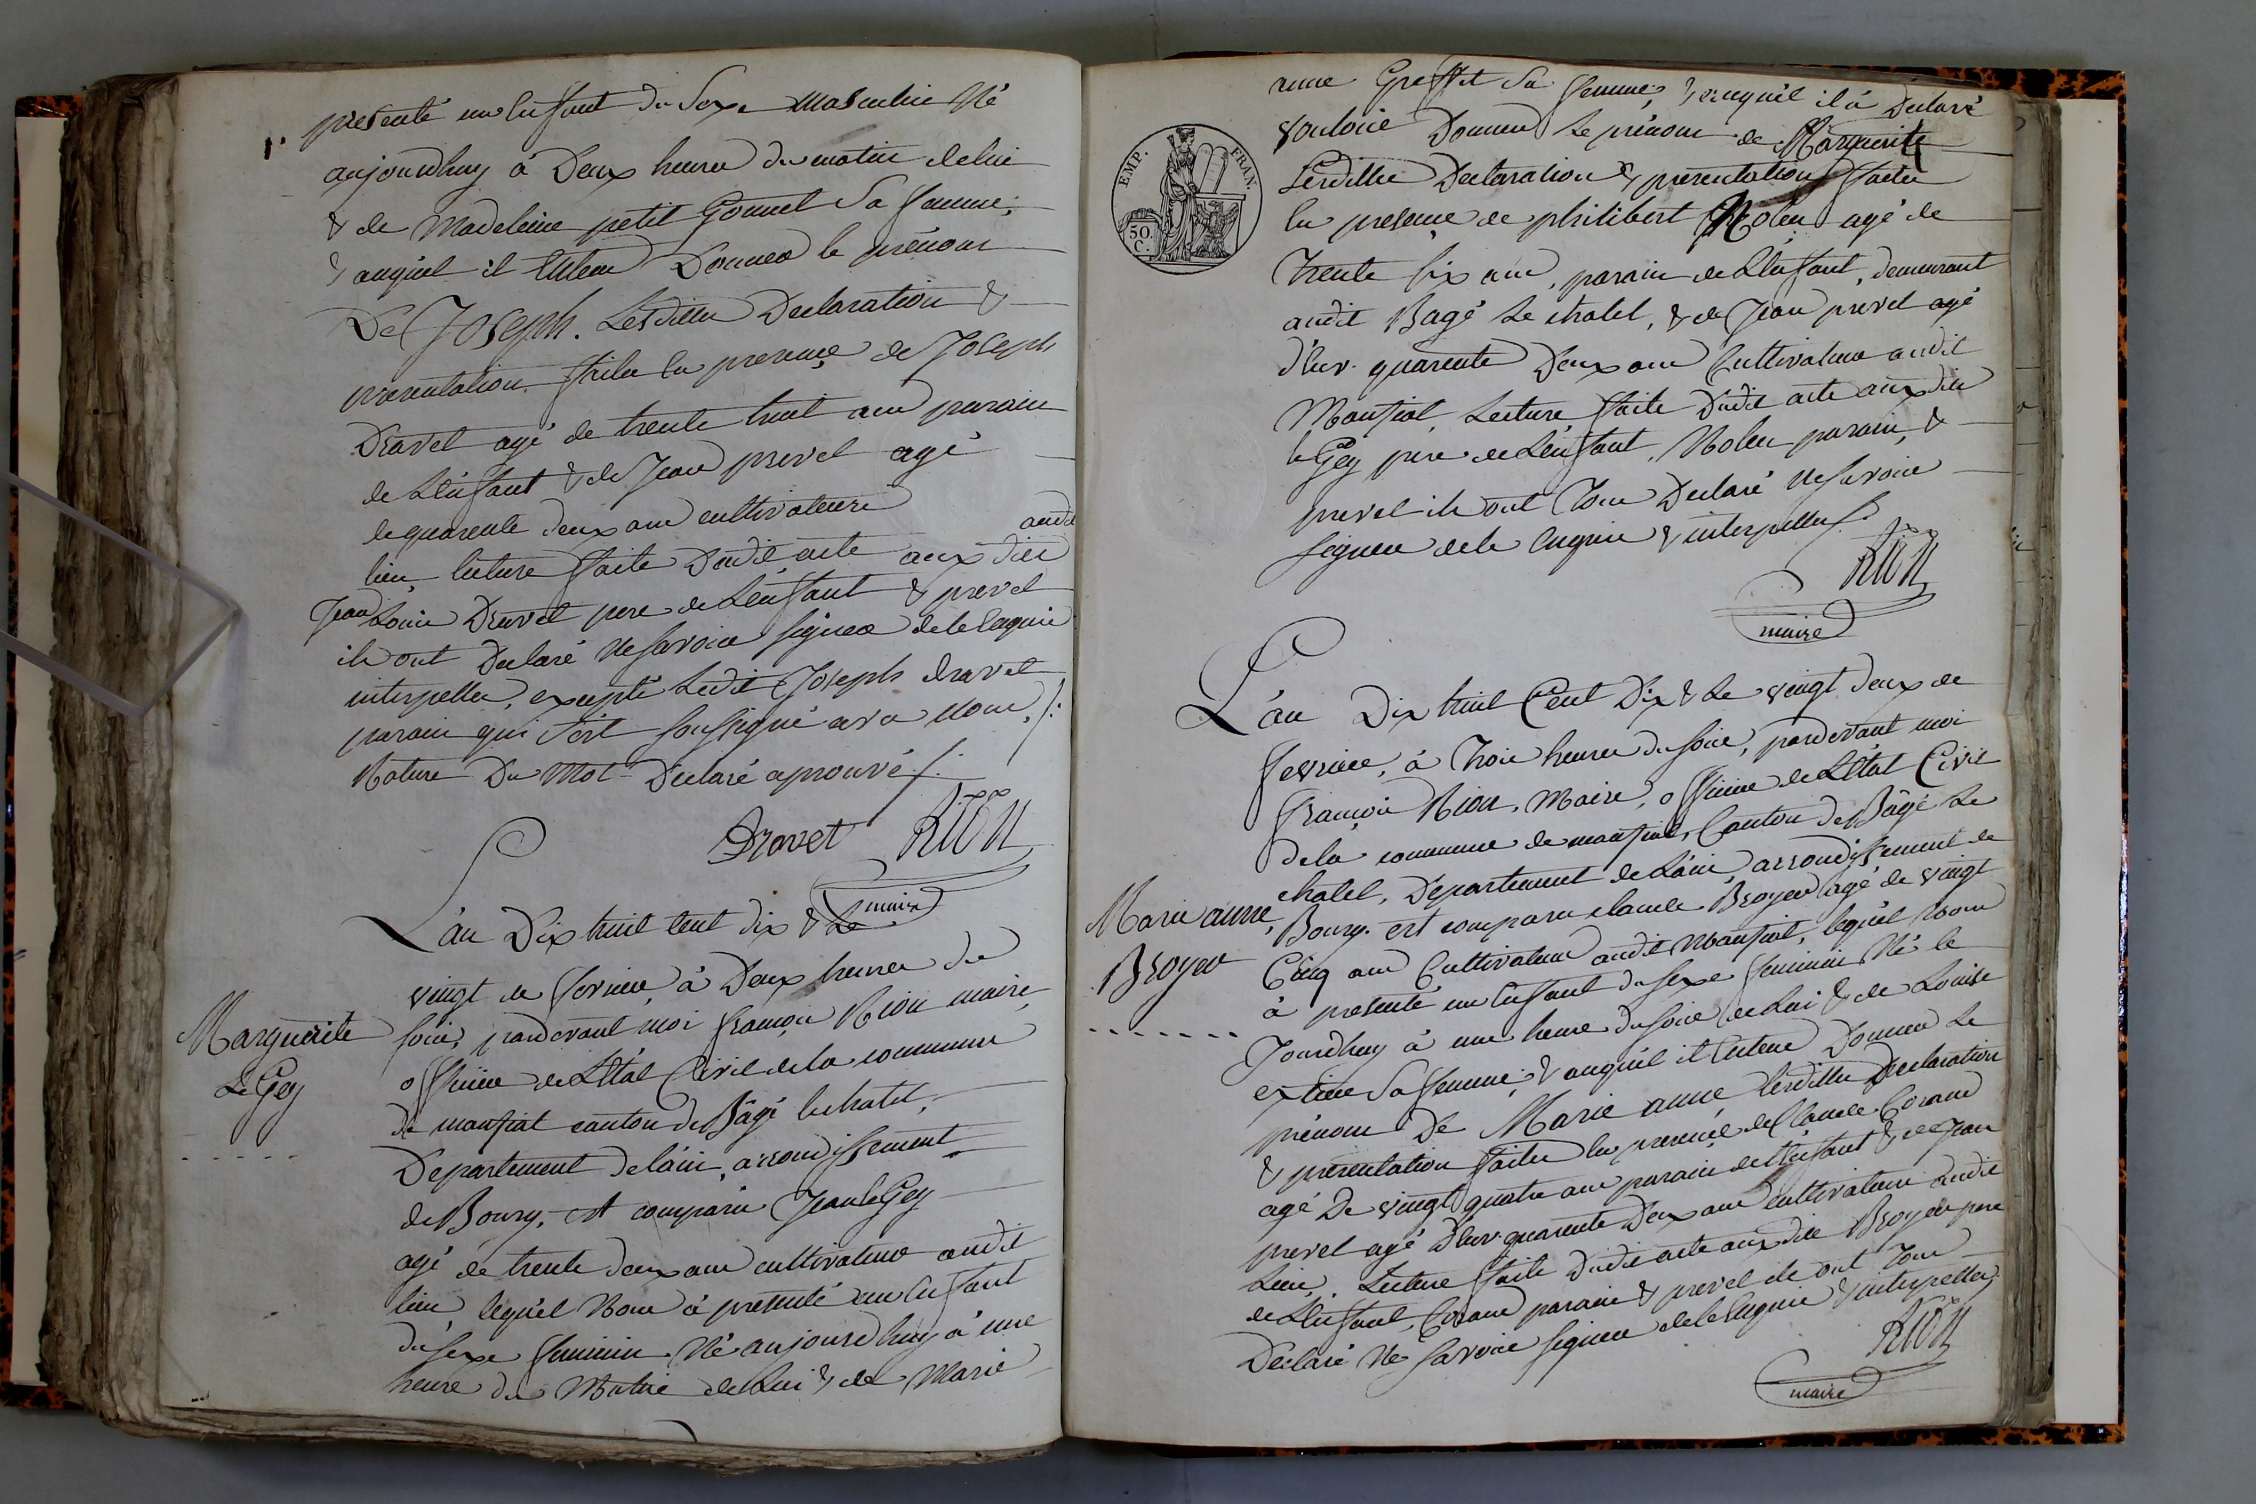 presenté un Enfant du Sexe masculin Né
aujourdhuy à Deux heures du matin de lui
& de Madeleine petit Gonnet Sa femme;
& auquel il Entend Donner le prénom
De Joseph. Lesdittes Declaration &
presentation faites En presence de Joseph
Dravet agé de trente huit ans parain
de L'enfant & de Jean prevel agé
de quarente deux ans cultivateurs audit
lieu, lecture faite Dudit acte aux dits
Jean Louis Dravet pere de L'enfant & prevel
ils ont Declaré Ne Savoire Signer de ce Enquis
interpellés, excepté Ledit Joseph dravet
parain qui s'est Soussigné avec Nous ./:
Rature Du Mot Declaré aprouvé ./.
Dravet RION
maire
L'an Dix huit Cent dix & Le
vingt de fevrier, à Deux heures du
Marguerite
Le Gey
soir, pardevant moi françois Rion maire,
officier de L'Etat Civil de la commune
de mansiat canton de Bâgé le chatel,
Departement de L'ain, arrondissement
de Bourg, est comparu Jean le Gey
agé de trente deux ans cultivateur audit
lieu, lequel Nous à presenté un Enfant
du sexe feminin Né aujourdhuy à une
heure du Matin de Lui & de Marie
anne Greffet Sa femme, & auquel il à Declaré
vouloire Donner Le prénom de Marguerite
Lesdittes Declaration & presentation faites
En presence de philibert Nolen agé de
Trente six ans, parain de L'Enfant, demeurant
audit Bagé Le chatel, & de Jean prevel agé
d'env. quarente Deux ans Cultivateur audit
Mansiat, Lecture faite Dudit acte auxdits
le Gey pere de L'enfant, Nolen parain, &
prevel ils ont Tous Declaré Ne Savoire
Signer de ce Enquis & interpellés ./.
RION
maire
EMP. FRAN.
50.
C.
L'an Dix huit Cent Dix & Le vingt deux de
fevrier, à Trois heures du soir, pardevant moi
françois Rion, Maire, officier de L'Etat Civil
de la commune de mansiat, Canton de Bâgé Le
chatel, Departement de L'ain, arrondissement de
Marie anne,
Broyer
Bourg. est comparu claude Broyer agé de vingt
Cinq ans Cultivateur audit Mansiat, lequel Nous
à presenté un Enfant du sexe feminin Né le
Jourdhuy à une heure du soir de Lui & de Louise
extine Sa femme, & auquel il Entend Donner Le
prénom De Marie anne Lesdittes Declaration
& presentation faites En presence de Claude Corand
agé De vingt quatre ans parain de L'Enfant & de Jean
prevel agé D'env. quarente Deux ans cultivateurs audit
Lieu, Lecture faite Dudit acte auxdits Broyer pere
de L'Enfant, Corand parain & prevel ils ont Tous
Declaré Ne Savoire Signer de ce Enquis & interpellés
RION
maire